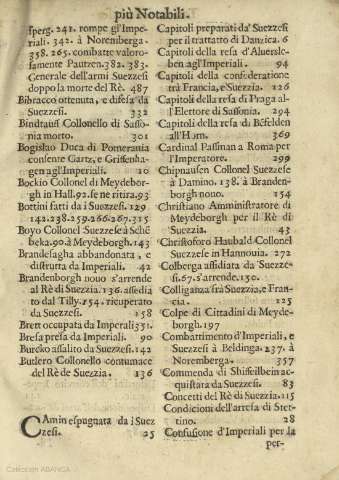 più Notabili.
sperg. 241. rompe gl'Impe-
riali. 342. à Noremberga.
358. 265. combatte valoro-
samente Pautzen. 382. 383.
Generale dell'armi Suezzesi
doppo la morte del Rè. 487
Bibracco ottenuta, e difesa da
Suezzesi. 332
Bindtaufs Collonello di Sasso-
nia morto. 301
Bogislao Duca di Pomerania
consente Gartz, e Griffenha-
gen agl'Imperiali. 10
Bockio Collonel di Meydebor-
gh in Hall. 92. se ne ritira. 93
Bottini fatti da i Suezzesi. 129
142. 238. 259. 266. 267. 315
Boyo Collonel Suezzese à Schê
beka. 90. à Meydeborgh. 143
Brandesagha abbandonata, e
distrutta da Imperiali. 42
Brandenborgh nouo s'arrende
al Rè di Suezzia. 136. assedia
to dal Tilly. 154. ricuperato
da Suezzesi. 158
Brett occupata da Imperali 331.
Bresa presa da Imperiali. 90
Burcko assalito da Suezzesi. 142
Butlero Collonello contumace
del Rè de Suezzia. 136
CAmin espugnata da i Suez
zesi. 25
Capitoli preparati da' Suezzesi
per il trattato di Danzica. 6
Capitoli della resa d'Aluersle-
ben agl'Imperiali. 94
Capitoli della confederatione
trà Francia, e Suezzia. 126
Capitoli della resa di Praga al-
l'Elettore di Sassonia. 294
Capitoli della resa di Besfelden
all'Horn. 369
Cardinal Pasman a Roma per
l'Imperatore. 299
Chipnausen Collonel Suezzese
à Damino. 138. à Branden-
borgh nouo. 154
Christiano Amministratore di
Meydeborgh per il Rè di
Suezzia. 43
Christoforo Haubald Collonel
Suezzese in Hannouia. 272
Colberga assidiata da Suezze-
si. 67. s'arrende. 130.
Colliganza frà Suezzia, e Fran-
cia. 125
Colpe di Cittadini di Meyde-
borgh. 197
Combattimento d'Imperiali, e
Suezzesi à Beldinga. 237. à
Noremberga. 357
Commenda di Shiffeilbein ac-
quistara da Suezzesi. 83
Concetti del Rè di Suezzia. 115
Condicioni dell'arresa di Stet-
tino. 28
Confusione d'Imperiali per la
per-
Colección ABANCA